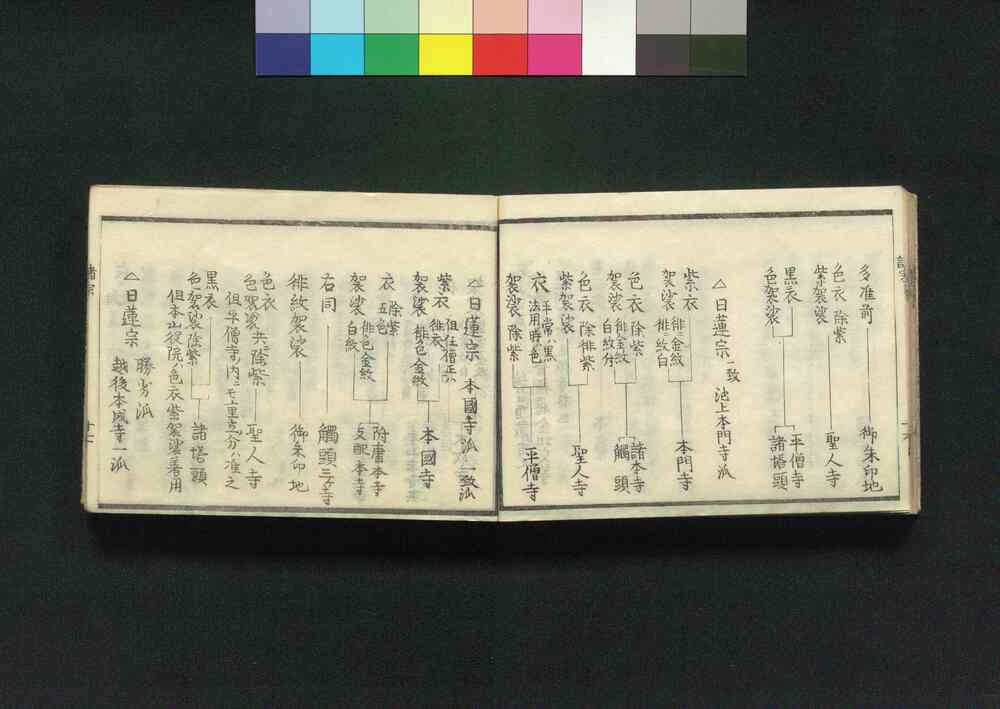 多准前 御朱印地
色衣 除紫
紫袈裟 聖人寺
黒衣
色袈裟
平僧寺
諸塔頭
△日蓮宗 一致 池上本門寺派
紫衣
袈裟 緋金紋 緋紋白 本門寺
色衣 除紫
袈裟 緋金紋 白紋付
諸本寺
觸頭
色衣 除緋紫
紫袈裟 聖人寺
衣 平常ハ黒 法用時ハ色
袈裟 除紫 平僧寺
△日蓮宗 本國寺派 一致派
紫衣 但住僧正ハ緋衣
袈裟 緋色金紋 本國寺
衣 除紫 五色
袈裟 緋色金紋 白紋
附庸本寺
支配本寺
右同 觸頭三ケ寺
緋紋袈裟 御朱印地
色衣
色袈裟 共ニ除紫 聖人寺
但平僧寺ノ内ニモ上里立分ハ准之
黒衣
色袈裟除紫 諸塔頭
但本山役院ハ色衣紫袈裟著用
△日蓮宗 勝劣派
越後本成寺一派
諸宗